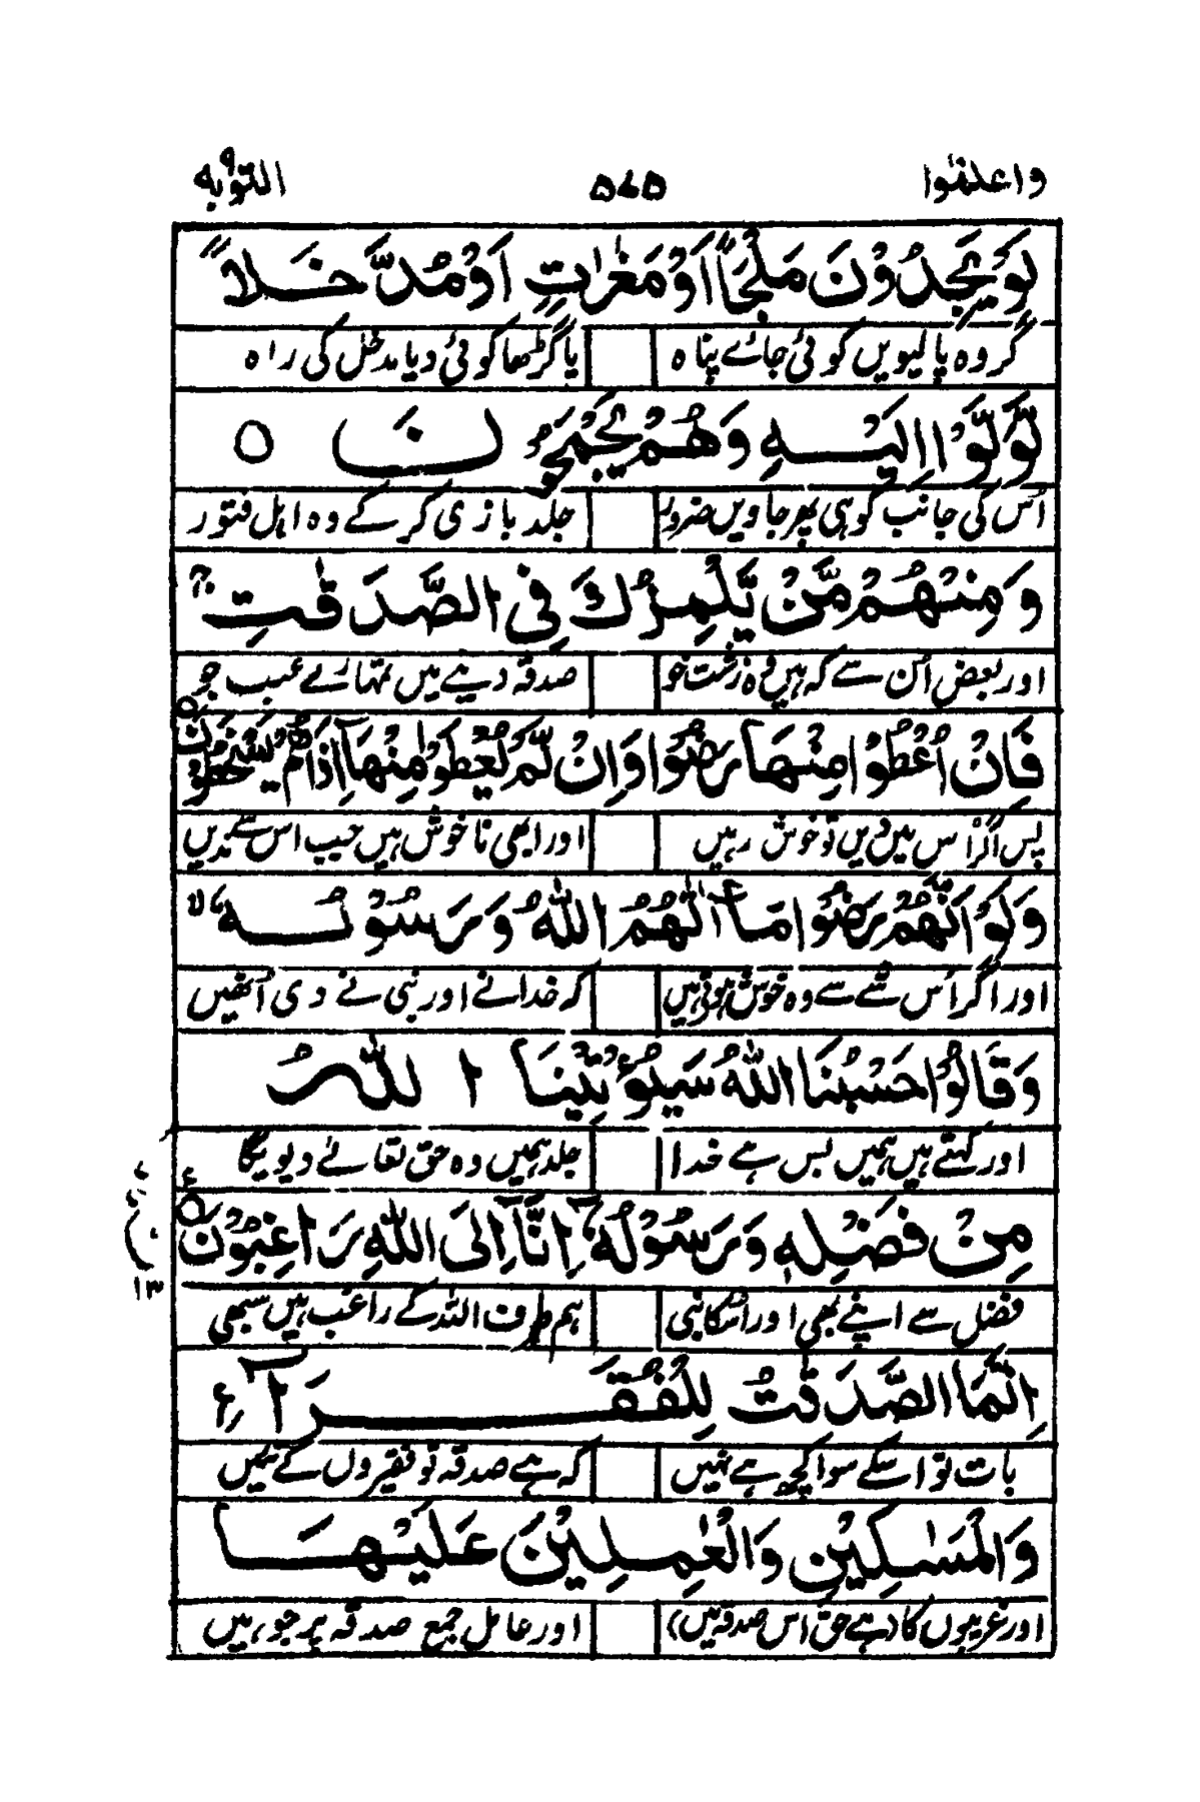 واعلموا ۵۷۵ التوبہ ۹
لَوْ يَجِدُوْنَ مَلْجَاً اَوْ مَغٰرٰتٍ اَوْ مُدَّخَلًا
گر وہ پالیویں کوئی جائے پناہ یا گڑھا کوئی دیا مدخل کی راہ
لَّوَلَّوْا اِلَيْهِ وَهُمْ يَجْمَحُوْنَ ○
اُس کی جانب کو ہی پھر جاویں ضرور جلد بازی کر کے وہ اہل فتور
وَمِنْهُمْ مَّنْ يَّلْمِزُكَ فِى الصَّدَقٰتِ ۚ
اور بعض اُن سے کہ ہیں وہ زشت خو صدقہ دینے میں تمہارے عیب جو
فَاِنْ اُعْطُوْا مِنْهَا رَضُوْا وَاِنْ لَّمْ يُعْطَوْا مِنْهَآ اِذَا هُمْ يَسْخَطُوْنَ ○
پس اگر اس میں دیں تو خوش رہیں اور ابھی ناخوش ہیں جب اس سے ندیں
وَلَوْ اَنَّهُمْ رَضُوْا مَآ اٰتٰهُمُ اللّٰهُ وَرَسُوْلُهٗ ۙ
اور اگر اُس شے سے وہ خوش ہوتے ہیں کہ خدا نے اور نبی نے دی اُنھیں
وَقَالُوْا حَسْبُنَا اللّٰهُ سَيُؤْتِيْنَا اللّٰهُ
اور کہتے ہیں ہمیں بس ہے خدا جلد ہمیں وہ حق تعالےٰ دیویگا
مِنْ فَضْلِهٖ وَرَسُوْلُهٗٓ ۙ اِنَّآ اِلَى اللّٰهِ رَاغِبُوْنَ ○ ع
۱۳
فضل سے اپنے بھی اور اُسکا نبی ہم طرف اللہ کے راغب ہیں سبھی
اِنَّمَا الصَّدَقٰتُ لِلْفُقَرَآءِ
بات تو اسکے سوا کچھ ہے نہیں کہ ہے صدقہ تو فقیروں کے تئیں
وَالْمَسٰكِيْنِ وَالْعٰمِلِيْنَ عَلَيْهَا
اور غریبوں کا (ہے حق اس صدقہ میں) اور عامل جمع صدقہ پر جو ہیں